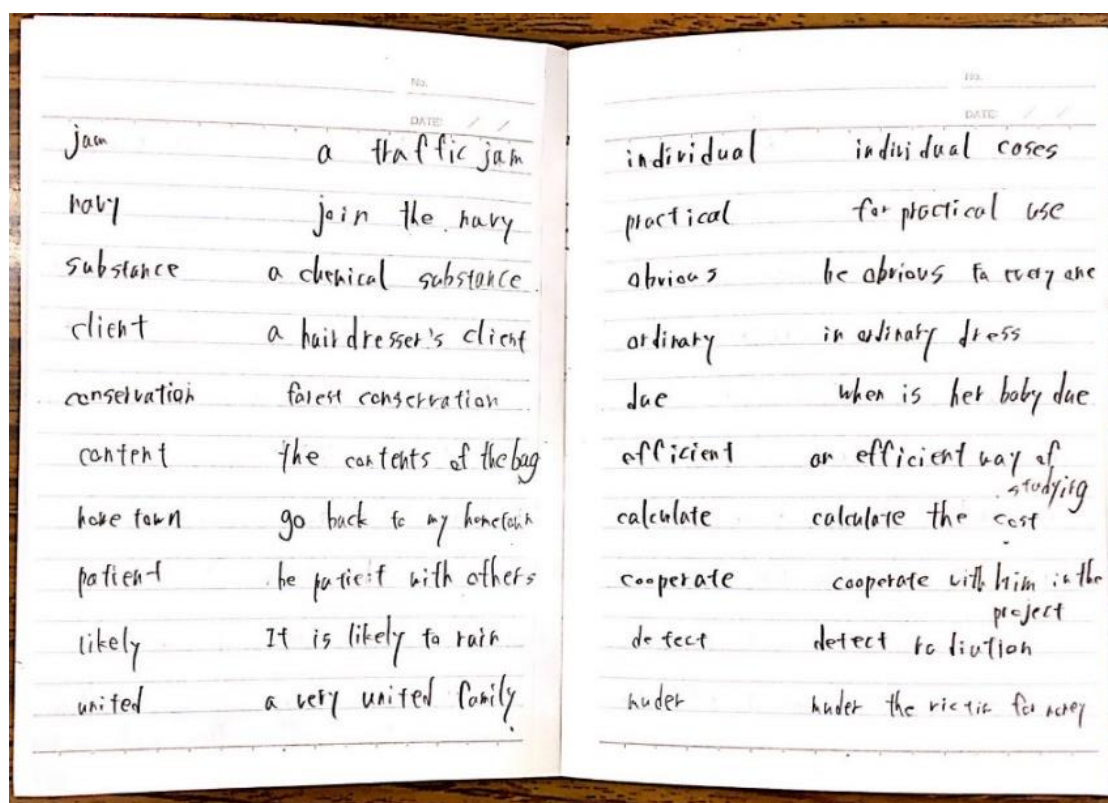 No.
DATE: / /
jam a traffic jam
navy join the navy
substance a chemical substance
client a hairdresser's client
conservation forest conservation
content the contents of the bag
home town go back to my hometown
patient be patient with others
likely It is likely to rain
united a very united family
No.
DATE / /
individual individual cases
practical for practical use
obvious be obvious to every one
ordinary in ordinary dress
due when is her baby due
efficient an efficient way of
studying
calculate calculate the cost
cooperate cooperate with him in the
project
detect detect radiation
the victim for money